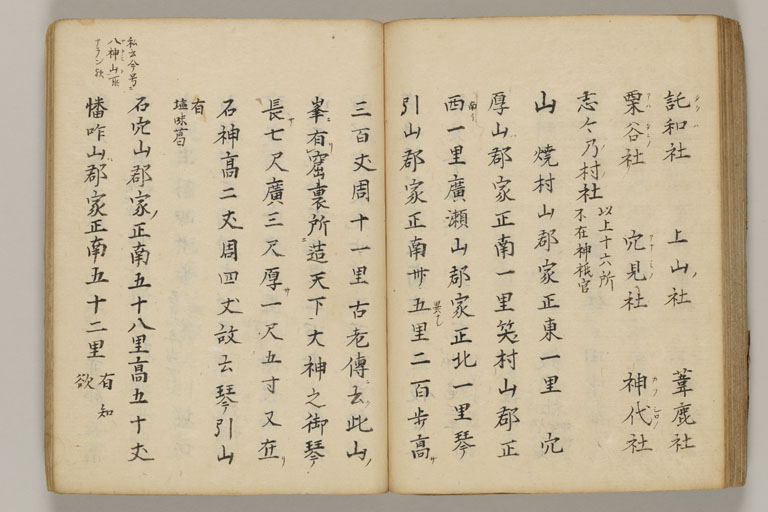 託和社　上山社　葦鹿社
粟谷社　穴見社　神代社
志々乃村社 以上十六所
不在神祇官
山 焼村山郡家正東一里 穴
厚山郡家正南一里 笑村山郡正
西一里廣瀬山郡家正北一里琴
引山郡家正南卅五里二百歩高
三百丈周十一里古老傳云此山
峯有窟裏所造天下大神之御琴
長七尺廣三尺厚一尺五寸又在
石神高二丈周四丈故云琴引山
有
塩味葛
石穴山郡家正南五十八里高五十丈
幡咋山郡家正南五十二里 有知
欲
私云今号
八神山所